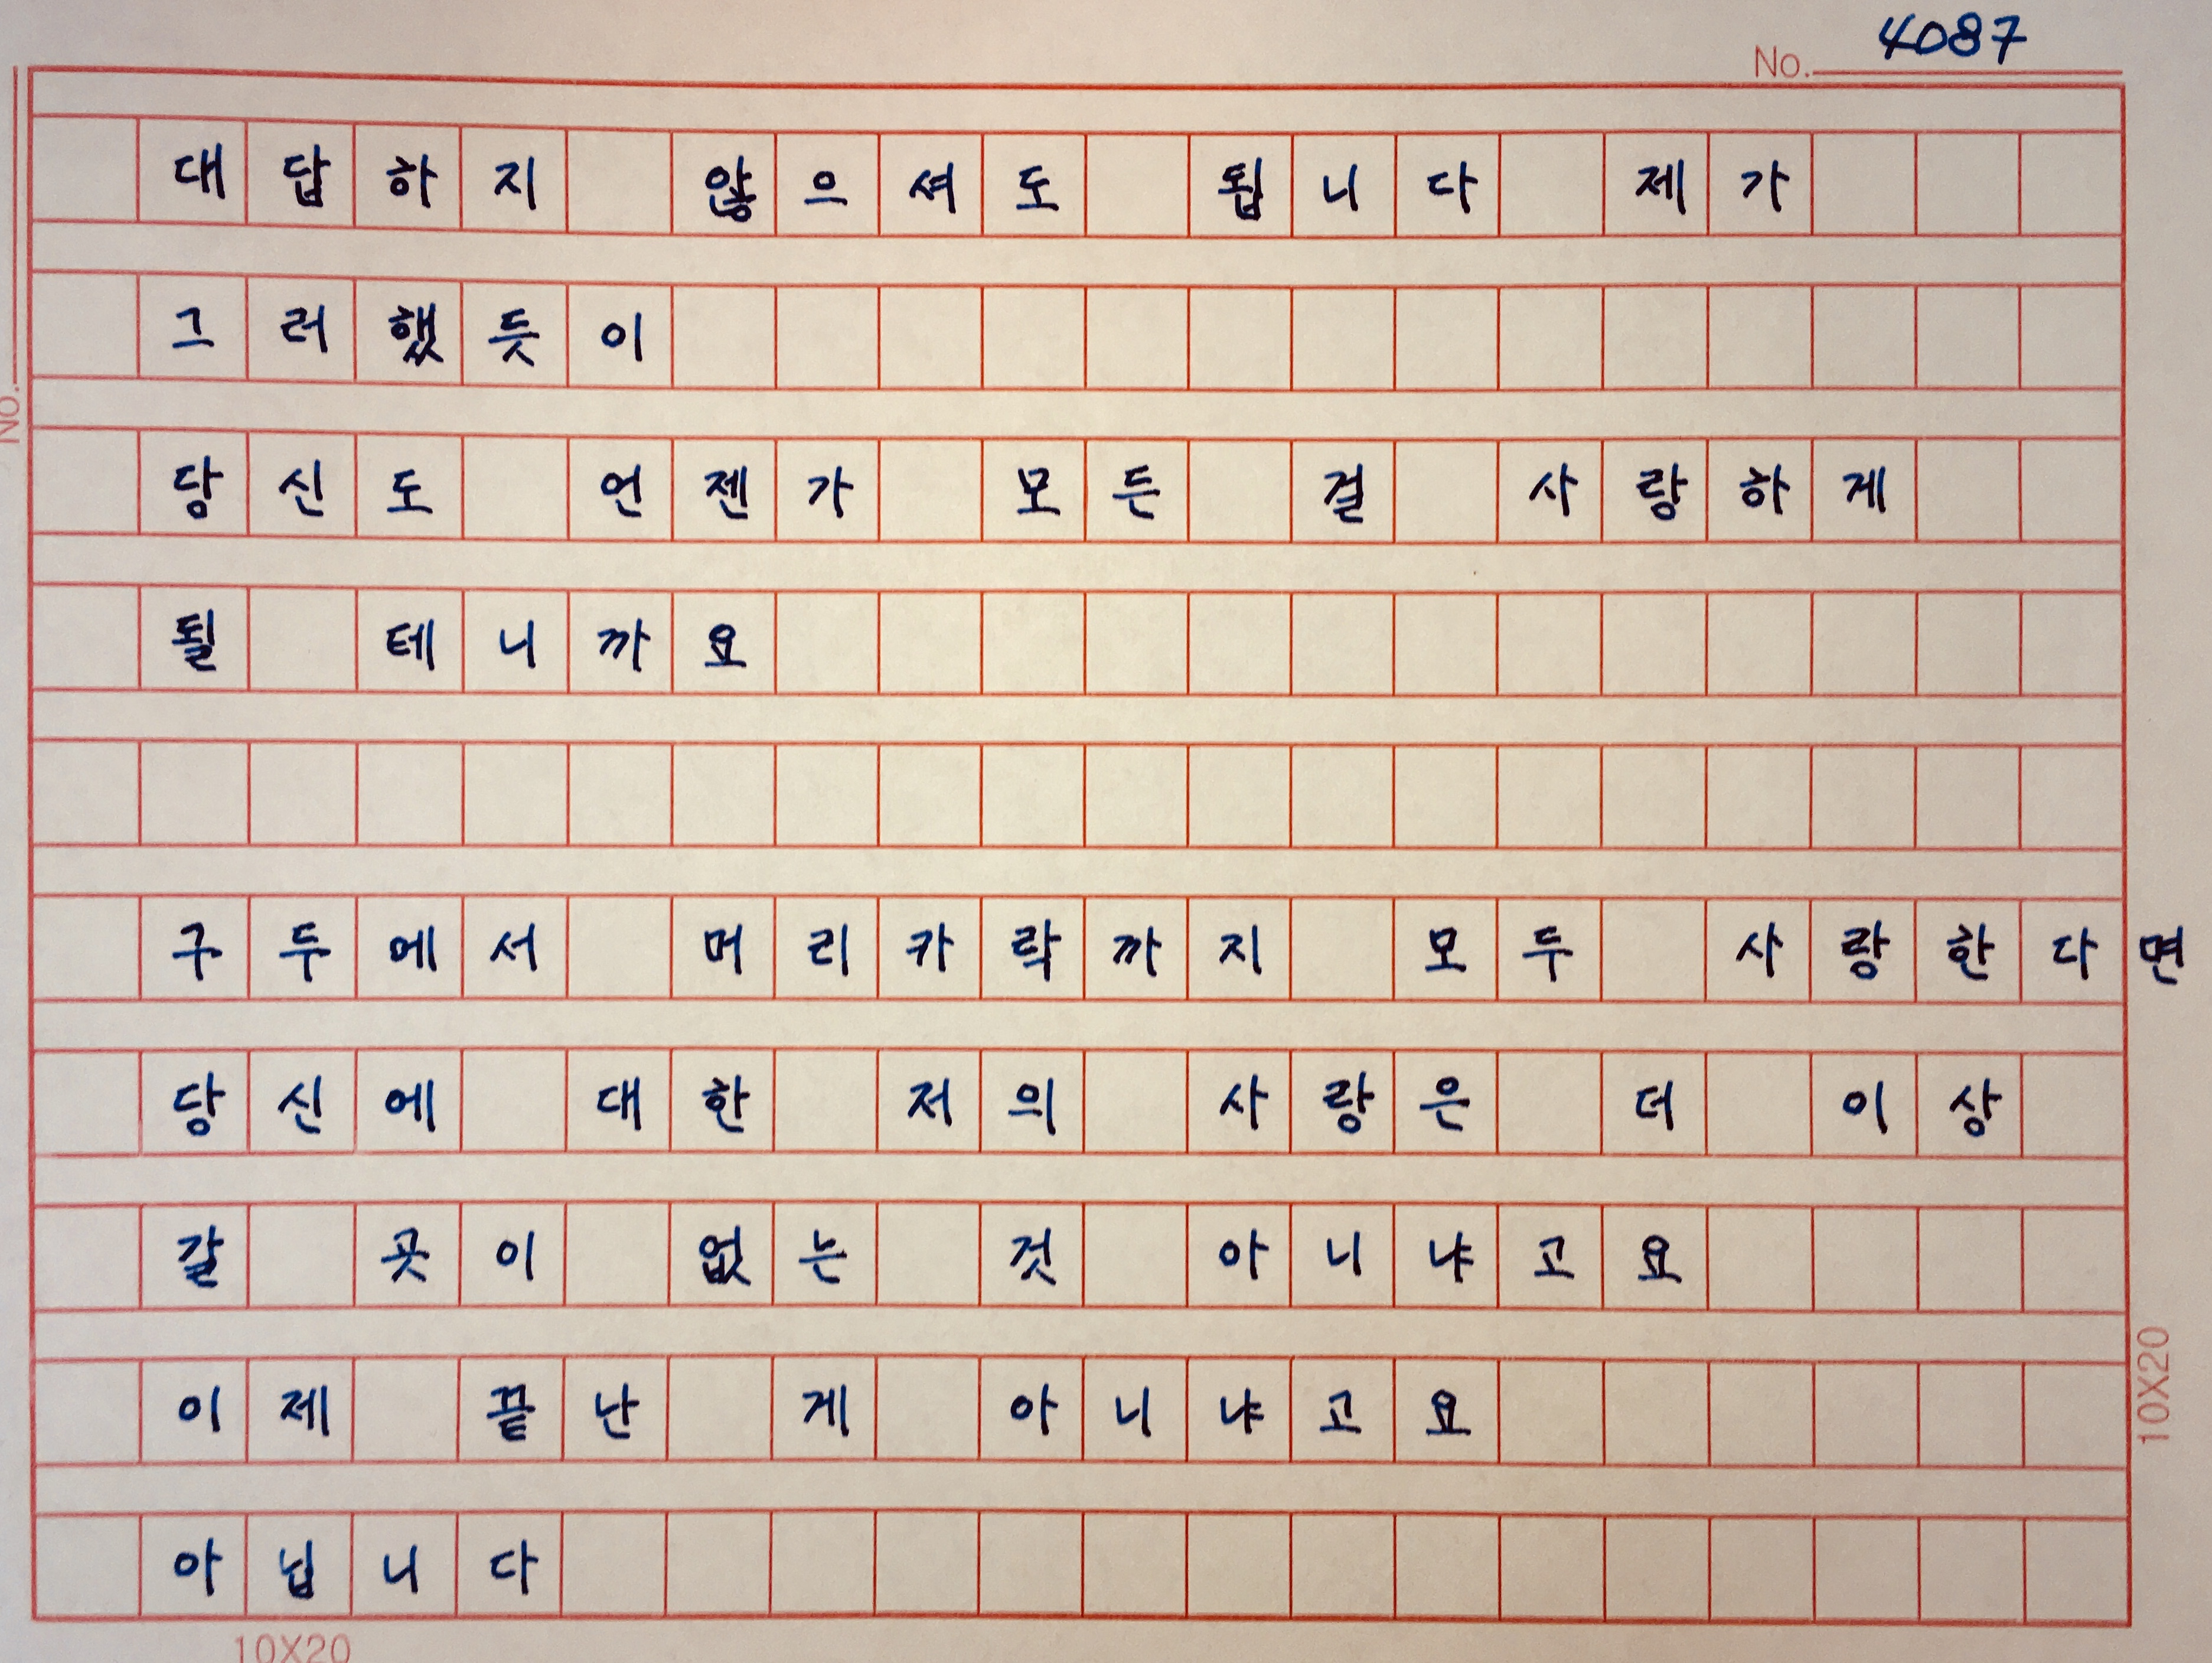 No. 4087
대답하지 않으셔도 됩니다 제가
그러했듯이
당신도 언젠가 모든 걸 사랑하게
될 테니까요
구두에서 머리카락까지 모두 사랑한다면
당신에 대한 저의 사랑은 더 이상
갈 곳이 없는 것 아니냐고요
이제 끝난 게 아니냐고요
아닙니다
No.
10X20
10X20